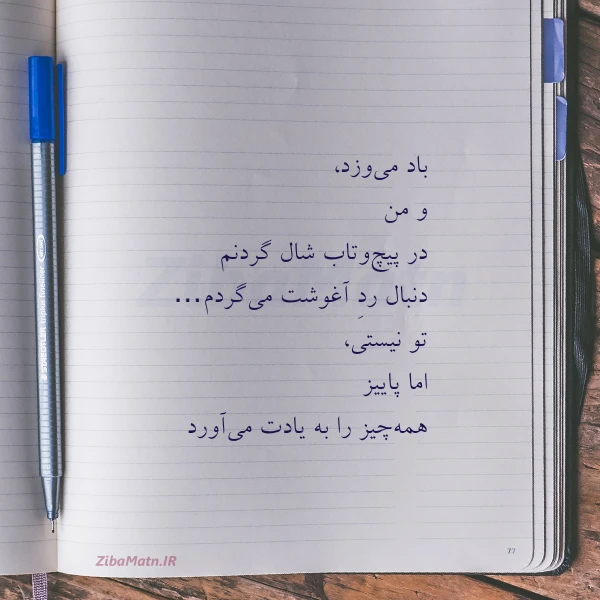 باد می‌وزد،
و من
در پیچ‌وتاب شال گردنم
دنبال ردِ آغوشت می‌گردم...
تو نیستی،
اما پاییز
همه‌چیز را به یادت می‌آورد
ZibaMatn.IR